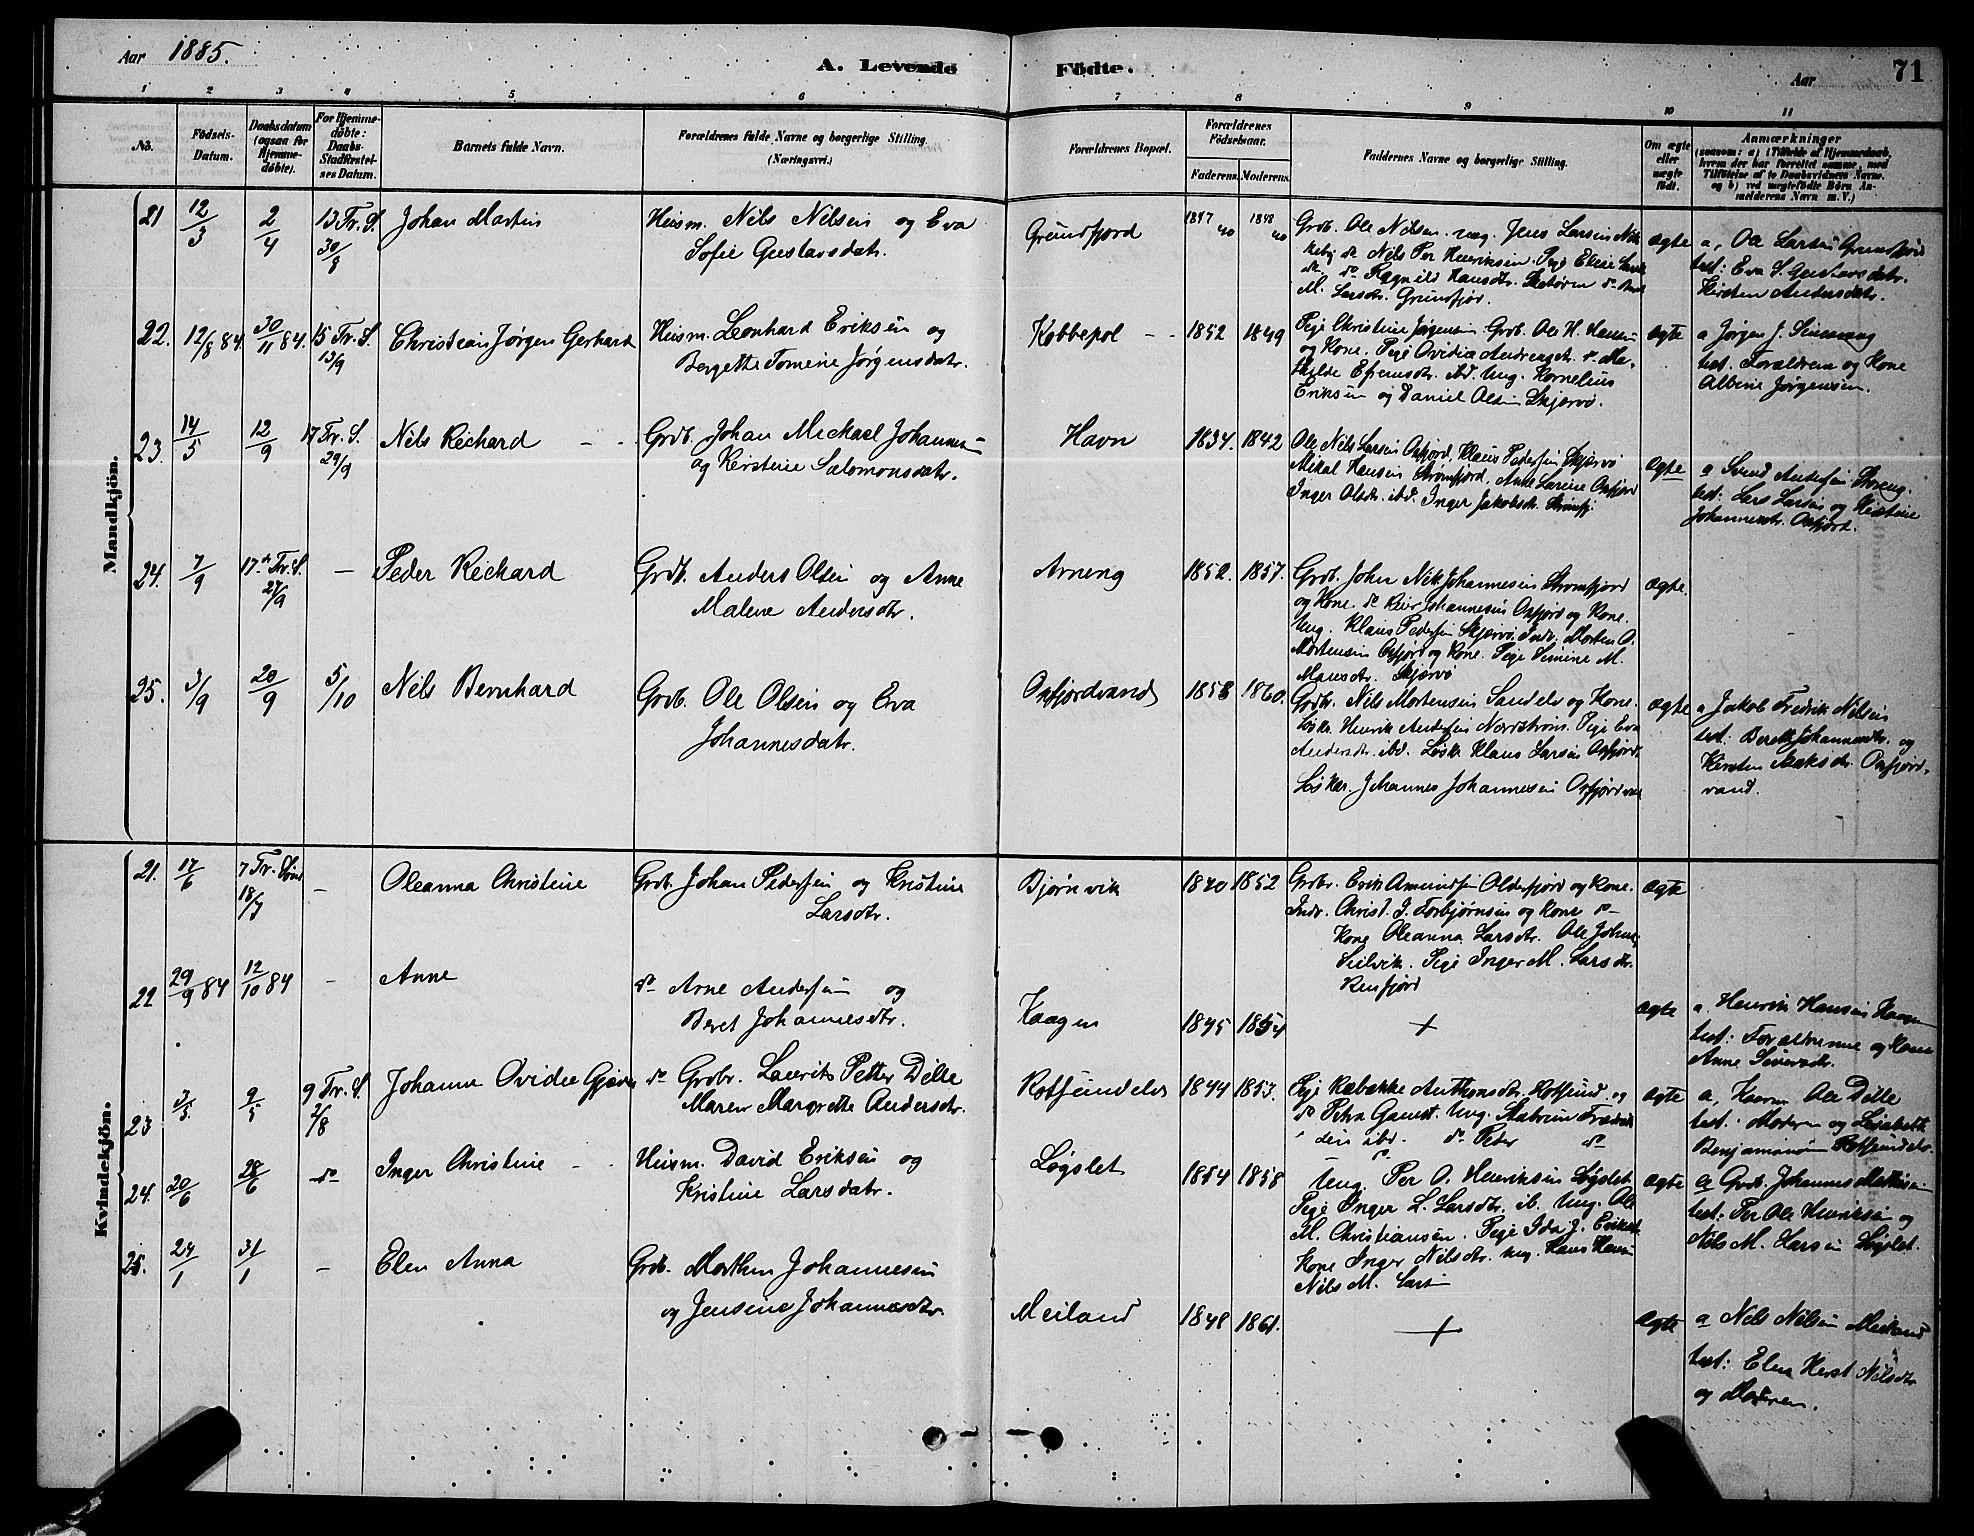 Aar 1885.
A. Levende Födte.
Aar
71
1 2 3 4 5 6 7 8 9 10 11
No.
Födsels-
Datum.
Daabsdatum
(ogsaa for
Hjemme-
döbte).
For Hjemme-
döbte:
Daabs-
Stadfæstel-
ses Datum.
Barnets fulde Navn.
Forældrenes fulde Navne og borgerlige Stilling.
(Næringsvei.)
Forældrenes Bopæl.
Forældrenes
Födselsaar.
Faderens. Moderens.
Faddernes Navne og borgerlige Stilling.
Om ægte
eller
uægte
födt.
Anmærkninger
(saasom: a) i Tilfælde af Hjemmedaab,
hvem der har forrettet samme, med
Tilföielse af to Daabsvidners Navne.
og b) ved uægtefödte Börn An-
melderens Navn m. V.)
Mandkjön.
21 12/3 2/4 13 Tr. S. 30/8 Johan Martin
Husm. Nils Nilsen og Eva
Sofie Gustavsdatr.
Grundfjord 1847 1848
Grdb. Ole Nilsen. ung. Jens Larsen
do Nils Per Henriksen. Pige
do Ragnild Hansdtr.
M. Larsdtr. Grundfjor.
ægte
a, Ole Larsen Grundfjord
test: Eva S. Gustavsdatr.
Kirsten Andersdatr.
22. 12/8 84. 30/11 84. 15 Tr. S. 13/9 Christian Jørgen Gerhard
Husm. Leonhard Eriksen og
Bergette Tomine Jørgensdatr.
Kobbepol 1852 1849
Pige Christine Jørgensen. Grdb. Ole H. Hansen
og Kone. Pige Ovidia
Efremsdtr. ibd. Ung. Kornelius
Eriksen og Daniel Olsen Skjærvø.
ægte
a Jørgen J.
test. Forældrene og Kone
Albine Jørgensen.
23. 14/5 12/9 17 Tr. S. 29/9 Nils Richard
Grdb. Johan Mickael Johannesen
og Kirstine Salomonsdatr.
Havn 1834. 1842
Ole Nils Larsen Oxfjord, Klaus Pedersen Skjærvø
Mikal Hansen Strømfjord, Anne Larine Oxfjord
Inger Olsdtr. ibd. Inger Jakobsdtr. Strømfj.
ægte
a Svend Andersen
test: Lars Larsen og Kirstine
Johannesdtr. Oxfjord.
24. 7/9 17de Tr. S. 27/9 – Peder Richard
Grdb. Anders Olsen og Anne
Malene Andersdtr.
Arneng 1852. 1857.
Grdb. John Nik Johannesen Strømfjord
og Kone. do Peder Johannesen Oxfjord og Kone.
Ung. Klaus Pedersen Skjærvø, Indr. Morten O.
Mortensen Oxfjord og Kone. Pige Simine M.
Mansdtr. Skjærvø
ægte.
25. 3/9 20/9 5/10 Nils Bernhard
Grdb. Ole Olsen og Eva
Johannesdatr.
Oxfjordvand 1858 1860.
Grdbr. Nils Mortensen Sandelv og Kone.
Løsk. Henrik Andersen Nordstrøm. Pige Eva
Andersdtr. ibd. Løsk. Klaus Larsen Oxfjord.
Løsker. Johannes Johannesen Oxfjordvan
ægte
a Jakob Fredrik Nilsen
test: Bereth Johannesdtr. og
Kirsten Isaksdtr. Oxfjord-
vand.
Kvindekjön.
21. 17/6 7 Tr. Sønd 18/7 – Oleanna Christine
Grdb. Johan Pedersen og Kristine
Larsdtr.
Bjørnvik 1840 1852
Grdbr. Erik Amundsen Olderfjord og Kone.
Indr. Christ. J. Torbjørnsen og Kone do
Kone Oleanna Larsdtr. Ole Johns.
Pige Inger M. Larsdtr.
ægte
22 29/9 84 12/10 84 – Anne
do Arne Andersen og
Beret Johannesdtr.
Kaagen 1845 1854 +
ægte
a. Henrik Hansen Kaagen
test: Forældrene og Kone
Anne Siversdtr.
23 3/3 9/5 9 Tr. S. 2/8 Johanne Ovidie
do Grdbr. Laurits Petter Dille
Maren Margrethe Andersdtr.
Rotsundelv 1844 1853.
Pige Rebekke Anthonsdtr. Rotsund og
do Petra Gamst. Ung.
ibd. do Peter do
ægte
a, Husm. Ole Dille
test: Moderen og Lisabeth
Benjaminsen Rotsundelv.
24. 20/6 28/6 do Inger Christine
Husm. David Eriksen og
Kristine Larsdatr.
Løgslet 1854 1858
Ung. Per O. Henriksen Løgslet
Pige Inger L. Larsdtr. ib. Ung. Ole
M. Christiansen. Pige Ida J. Eriksd.
Kone Inger Nilsdtr. Ung. Hans Hansen
Nils M. Larsen
ægte
a Grdb. Johannes Mathisen
test: Per Ole Henriksen og
Nils M. Larsen Løgslet.
25. 24/1 31/1 – Elen Anna
Grdb. Morthen Johannesen
og Jensine Johannesdtr.
Meiland 1848 1861. +
ægte
a Nels Nilsen Meiland
test: Elen Kirst. Nilsdtr
og Moderen.